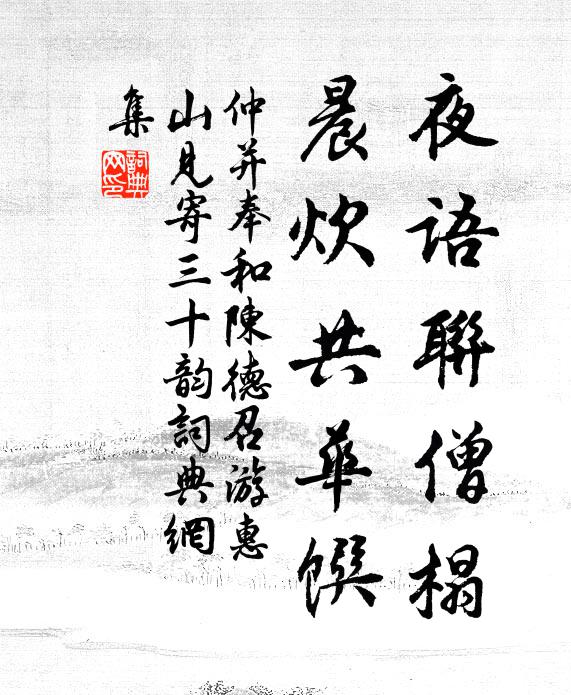 夜語聯僧榻
晨炊共華饌
仲并奉和陳德召游惠
山見寄三十韵詞典網
集
詞典網印